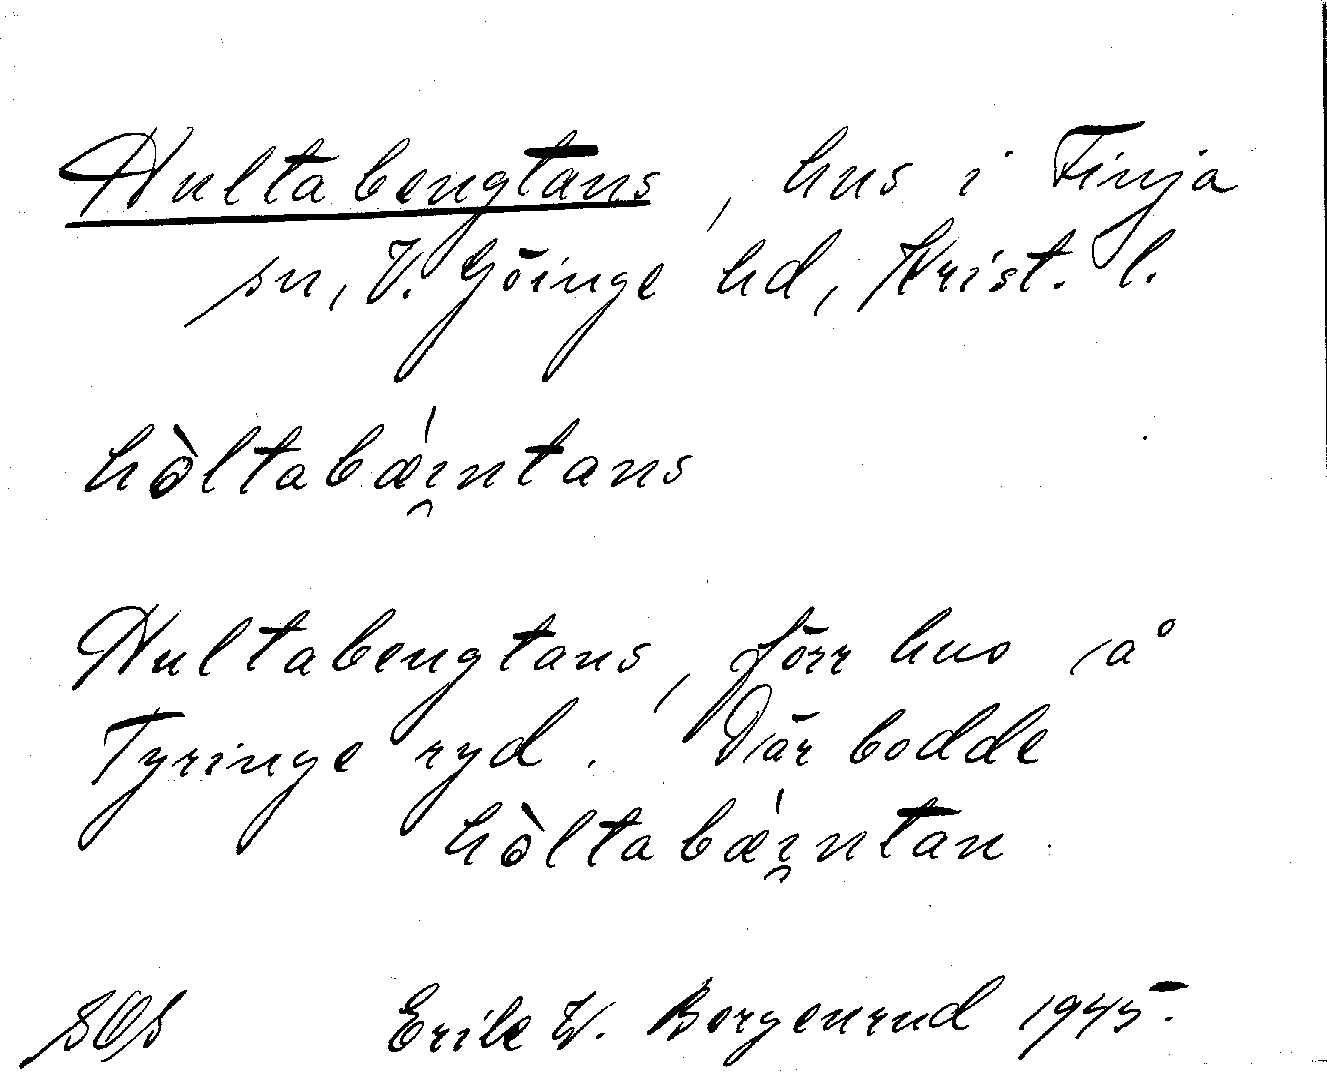 Hultabengtans, hus i Finja
sn, V. Göinge hd, Krist. l.
hòltabǽi̯ntans
Hultabengtans, förr hus på
Tyringe ryd. Där bodde
hòltabǽi̯ntan.
SOS Erik W. Borgenrud 1945.